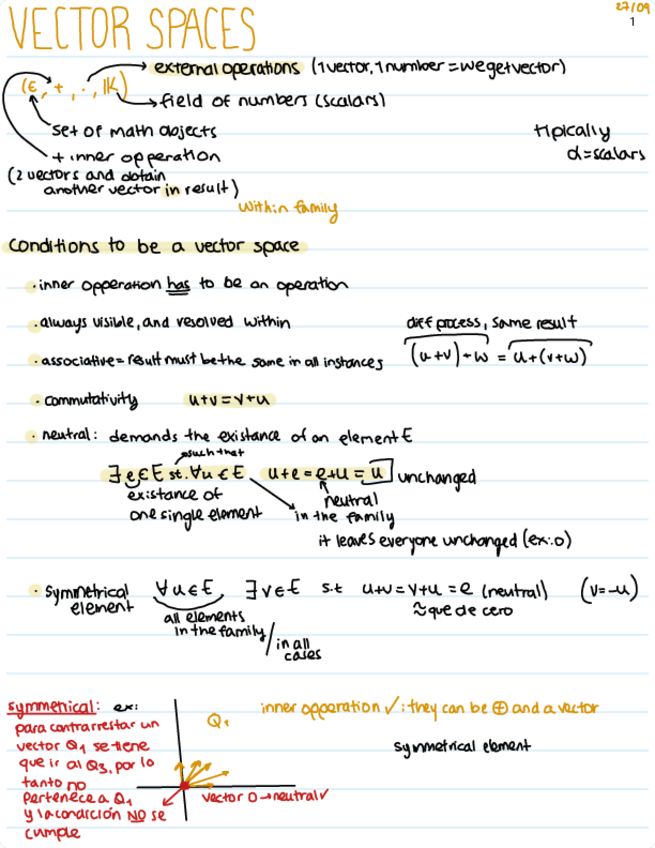 27/09
1
VECTOR SPACES
(E, +, ·, IK)
external operations (1 vector, 1 number = we get vector)
field of numbers (scalars)
set of math objects
+ inner opperation
(2 vectors and obtain
another vector in result)
within family
tipically
α=scalars
Conditions to be a vector space
· inner opperation has to be an operation
· always visible, and resolved within
· associative = result must be the same in all instances
diff process, same result
(u+v)+w = u+(v+w)
· commutativity u+v=v+u
· neutral: demands the existance of an element E
such that
∃ e∈E st. ∀u∈E u+e=e+u=u unchanged
existance of
one single element
in the family
neutral
it leaves everyone unchanged (ex:0)
· symmetrical
element
∀u∈E, ∃v∈E s.t u+v=v+u=e (neutral) (v=-u)
≈que de cero
all elements
in the family/in all
cases
symmetrical: ex:
para contrarrestar un
vector Q1 se tiene
que ir al Q3, por lo
tanto no
pertenece a Q1
y la condición NO se
cumple
Q1
vector 0→neutral✓
inner opperation ✓: they can be ⊕ and a vector
symmetrical element